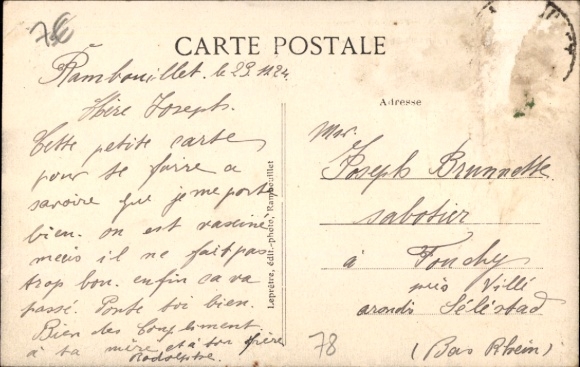 7€
CARTE POSTALE
Rambouillet le 23.11.24
Adresse
Hère Joseph.
Cette petite carte
pour te faire a
savoire que je me porte
bien. on est vasciné
mais il ne fait pas
trop bon. enfin sa va
passé. Porte toi bien.
Bien des Compliment
à ta mère et à ton frère
Rodolphe.
Leprêtre, édit.-photo, Rambouillet
Mr.
Joseph Brunnette
sabotier
à Fouchy
près Villé
arondis Séléstad
(Bas Rhein)
78